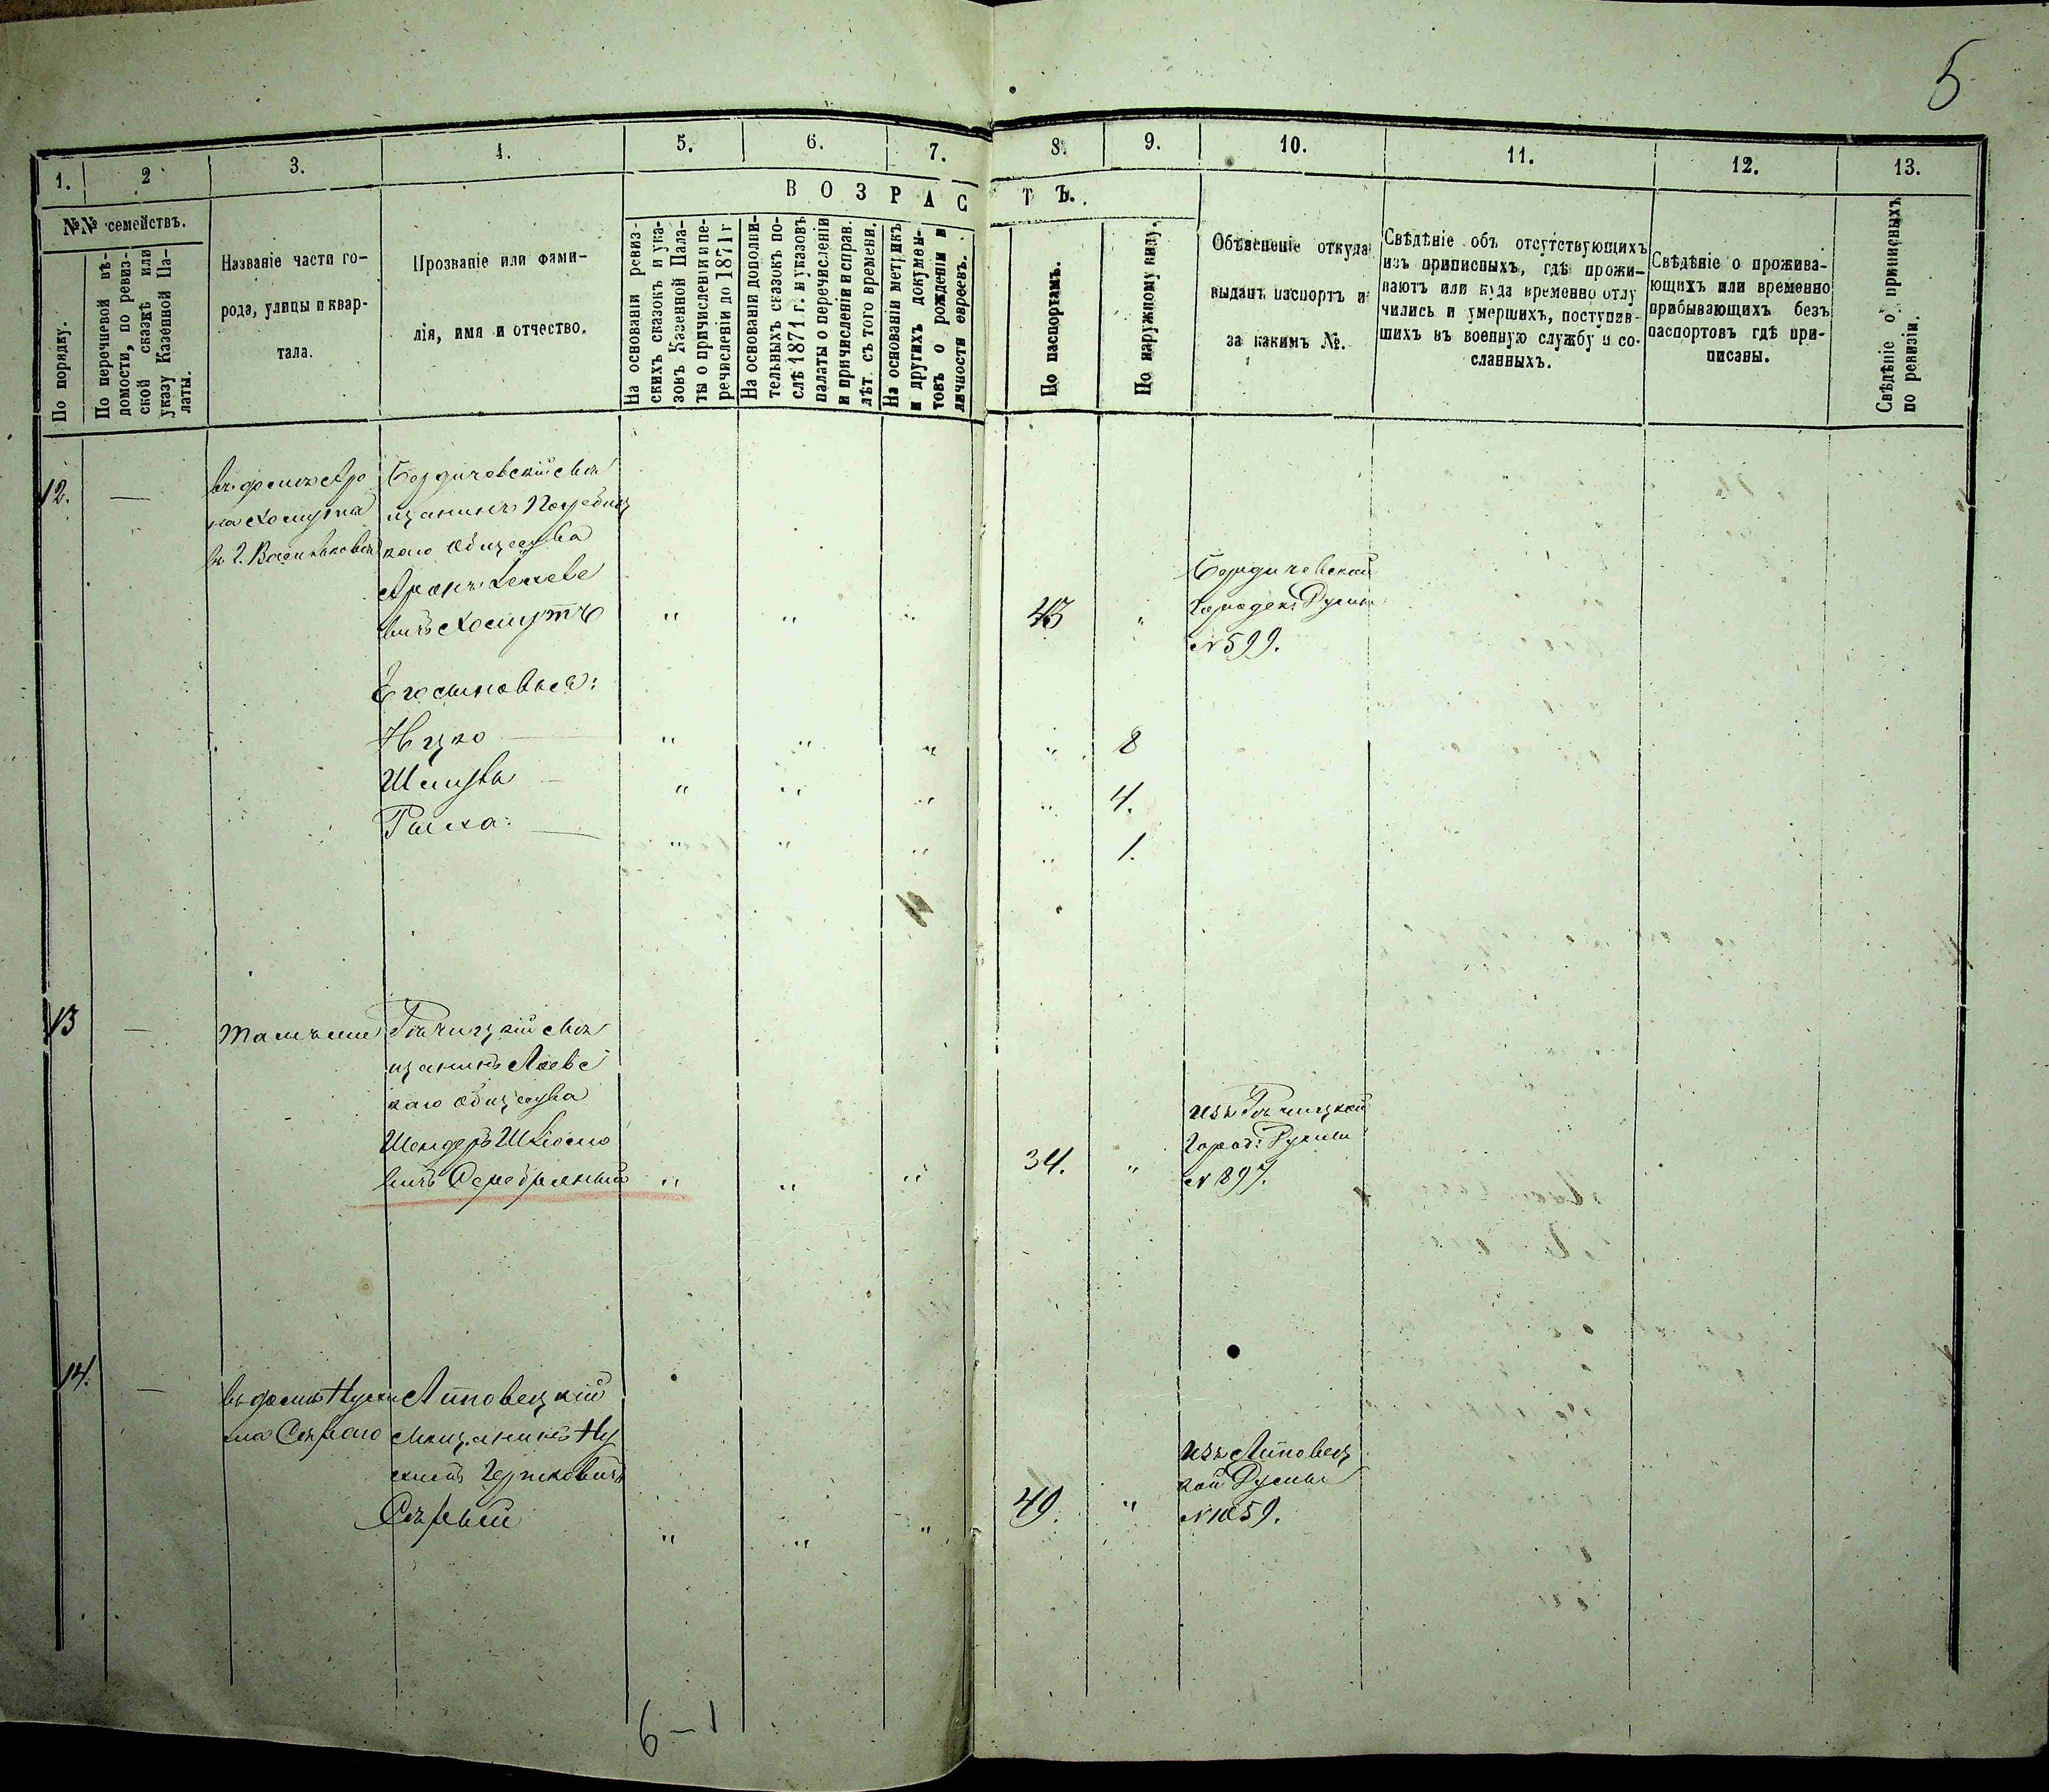 5
1. 2 3. 4. 5. 6. 7. 8. 9. 10. 11. 12. 13.
№№ семействъ.
По порядку.
По перечневой вѣ-
домости, по ревиз-
ской сказкѣ или
указу Казенной Па-
латы.
Названіе части го-
рода, улицы и квар-
тала.
Прозваніе или фами-
лія, имя и отчество.
ВОЗРАСТЪ.
На основаніи ревиз-
скихъ сказокъ и ука-
зовъ Казенной Пала-
ты о причисленіи и пе-
речисленіи до 1871 г
На основаніи дополни-
тельныхъ сказокъ по-
слѣ 1871 г. и указовъ
палаты о перечисленіи
и причисленіи и справ.
лѣт. съ того времени.
На основаніи метрикъ
и другихъ докумен-
товъ о рожденіи и
личности евреевъ.
По паспортамъ.
По наружному виду.
Объясненіе откуда
выданъ паспортъ и
за какимъ №.
Свѣдѣніе объ отсутствующихъ
изъ приписныхъ, гдѣ прожи-
ваютъ или куда временно отлу
чились и умершихъ, поступив-
шихъ въ военную службу и со-
сланныхъ.
Свѣдѣніе о прожива-
ющихъ или временно
прибывающихъ безъ
паспортовъ гдѣ при-
писаны.
Свѣдѣніе о приписныхъ
по ревизіи.
12. —
въ домѣ Аро
на Хомута
в г. Васильковѣ
Бердичевскій мѣ
щанинъ Погребищ
каго Общества
Аронъ
вичъ Хомутъ " " " 43 "
Бердичевской
Городск. Думы
№ 599.
Его сыновья:
Ицко — " " " " 8
" " " " 4.
" " " " 1.
13 — тамъ же
Рѣчицкій мѣ
щанинъ Лоевс
каго Общества
Шендеръ
вичъ Серебряный " " " 34. "
изъ Рѣчицкой
Город: Думы
№ 897.
14. —
въ домѣ Нухи
ма Сѣраго
Липовецкій
Мѣщанинъ Ну
химъ Гершковичъ
Сѣрый " " " 49. "
изъ Липовец
кой Думы
№ 1059.
6-1